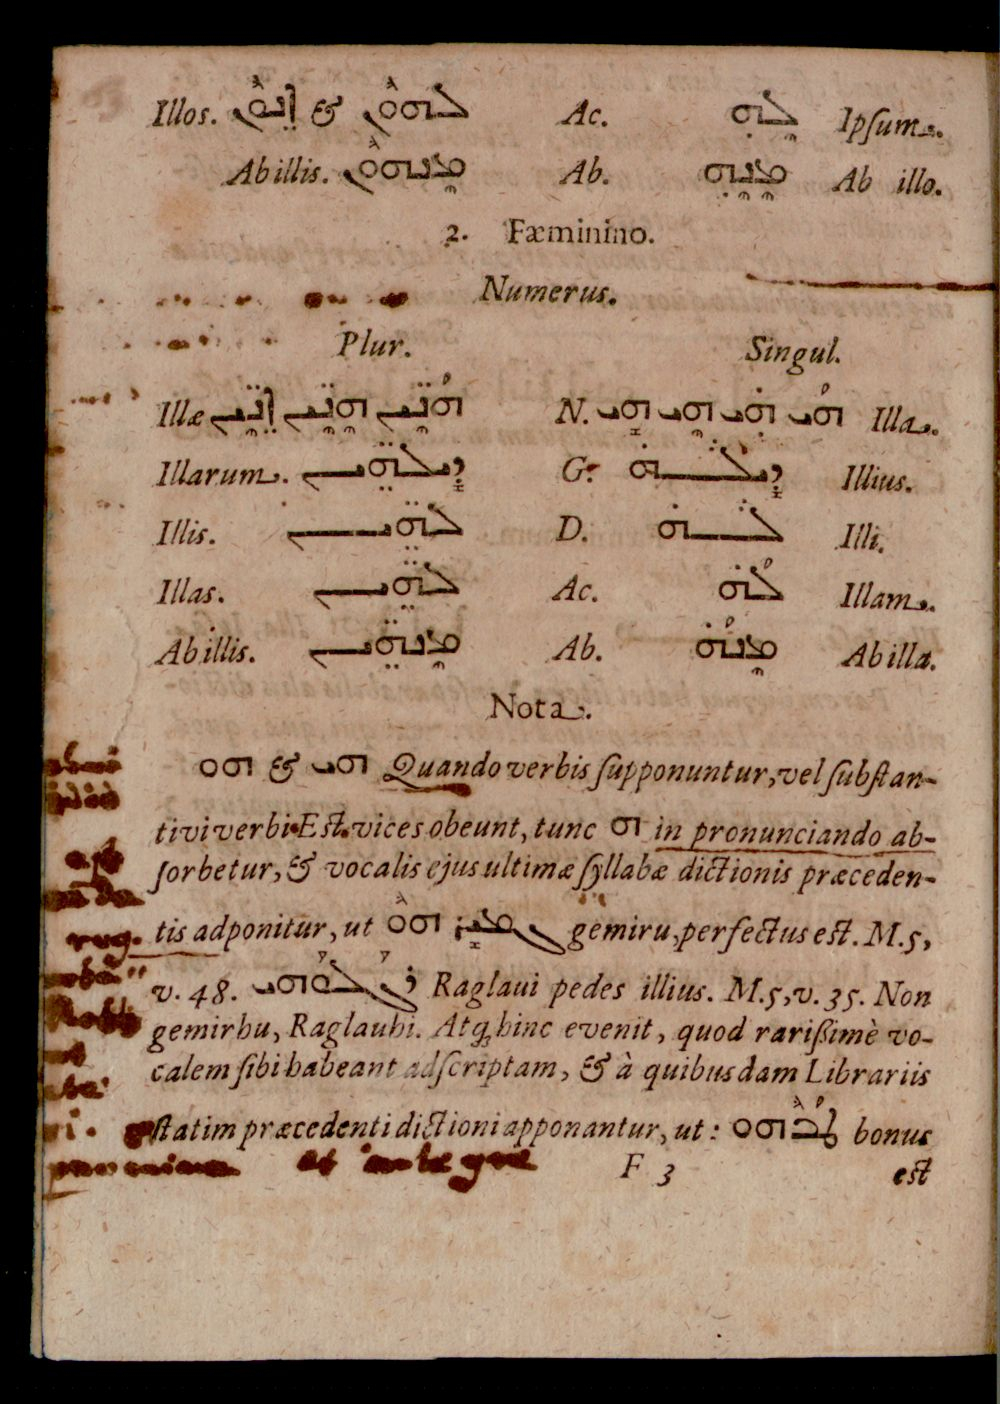 Illos. ܐܢܘܢ & ܠܗܘܢ Ac. ܠܗ Ipſum.
Ab illis. ܡܢܗܘܢ Ab. ܡܢܗ Ab illo.
2. Fæminino.
Numerus.
Plur. Singul.
Illæ ܐܢܝܢ ܗܢܝܢ ܗܢܝܢ N. ܗܝ ܗܝ ܗܝ ܗܝ Illa.
Illarum. ܕܠܗܝܢ G. ܕܠܗ Illius.
Illis. ܠܗܝܢ D. ܠܗ Illi.
Illas. ܠܗܝܢ Ac. ܠܗ Illam.
Ab illis. ܡܢܗܝܢ Ab. ܡܢܗ Ab illa.
Nota.
ܗܘ & ܗܝ Quando verbis ſupponuntur, vel ſubſtan-
tivi verbi Eſt vices obeunt, tunc ܗ in pronunciando ab-
ſorbetur, & vocalis ejus ultimæ ſyllabæ dictionis præceden-
tis adponitur, ut ܓܡܝܪ ܗܘ gemiru, perfectus eſt. M. 5,
v. 48. ܪܓܠܘܗܝ Raglaui pedes illius. M. 5, v. 35. Non
gemirhu, Raglauhi. Atq; hinc evenit, quod rariſſimè vo-
calem ſibi habeant adſcriptam, & à quibusdam Librariis
ſtatim præcedenti dictioni apponantur, ut: ܛܒܗܘ bonus
F 3 eſt